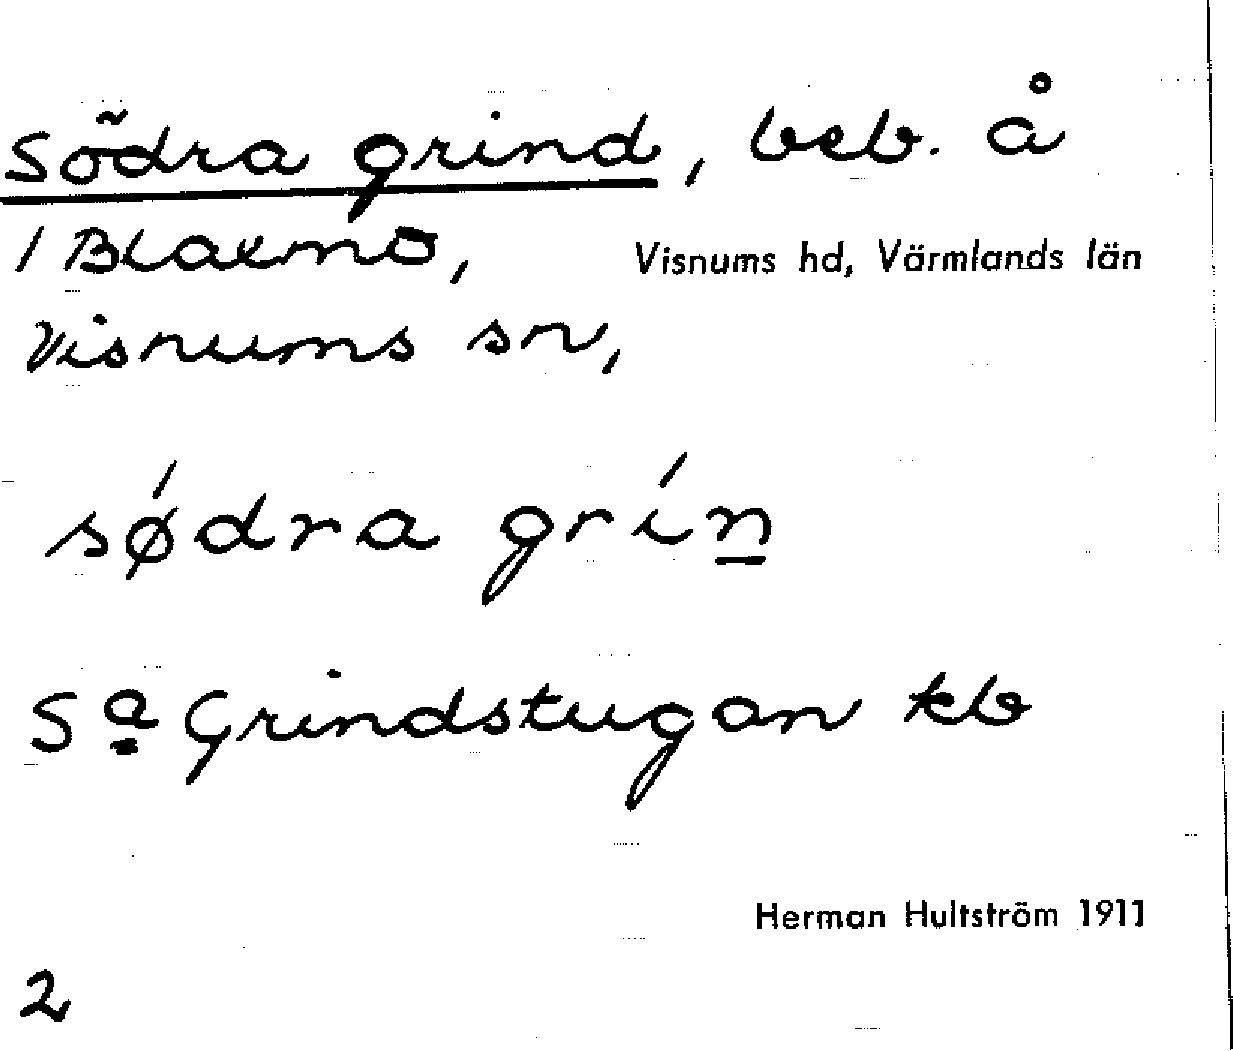 Södra grind, beb. å
1 Blaxmo, Visnums hd, Värmlands län
Visnums sn,
sǿdra grín
Sa Grindstugan kb
Herman Hultström 1911
2